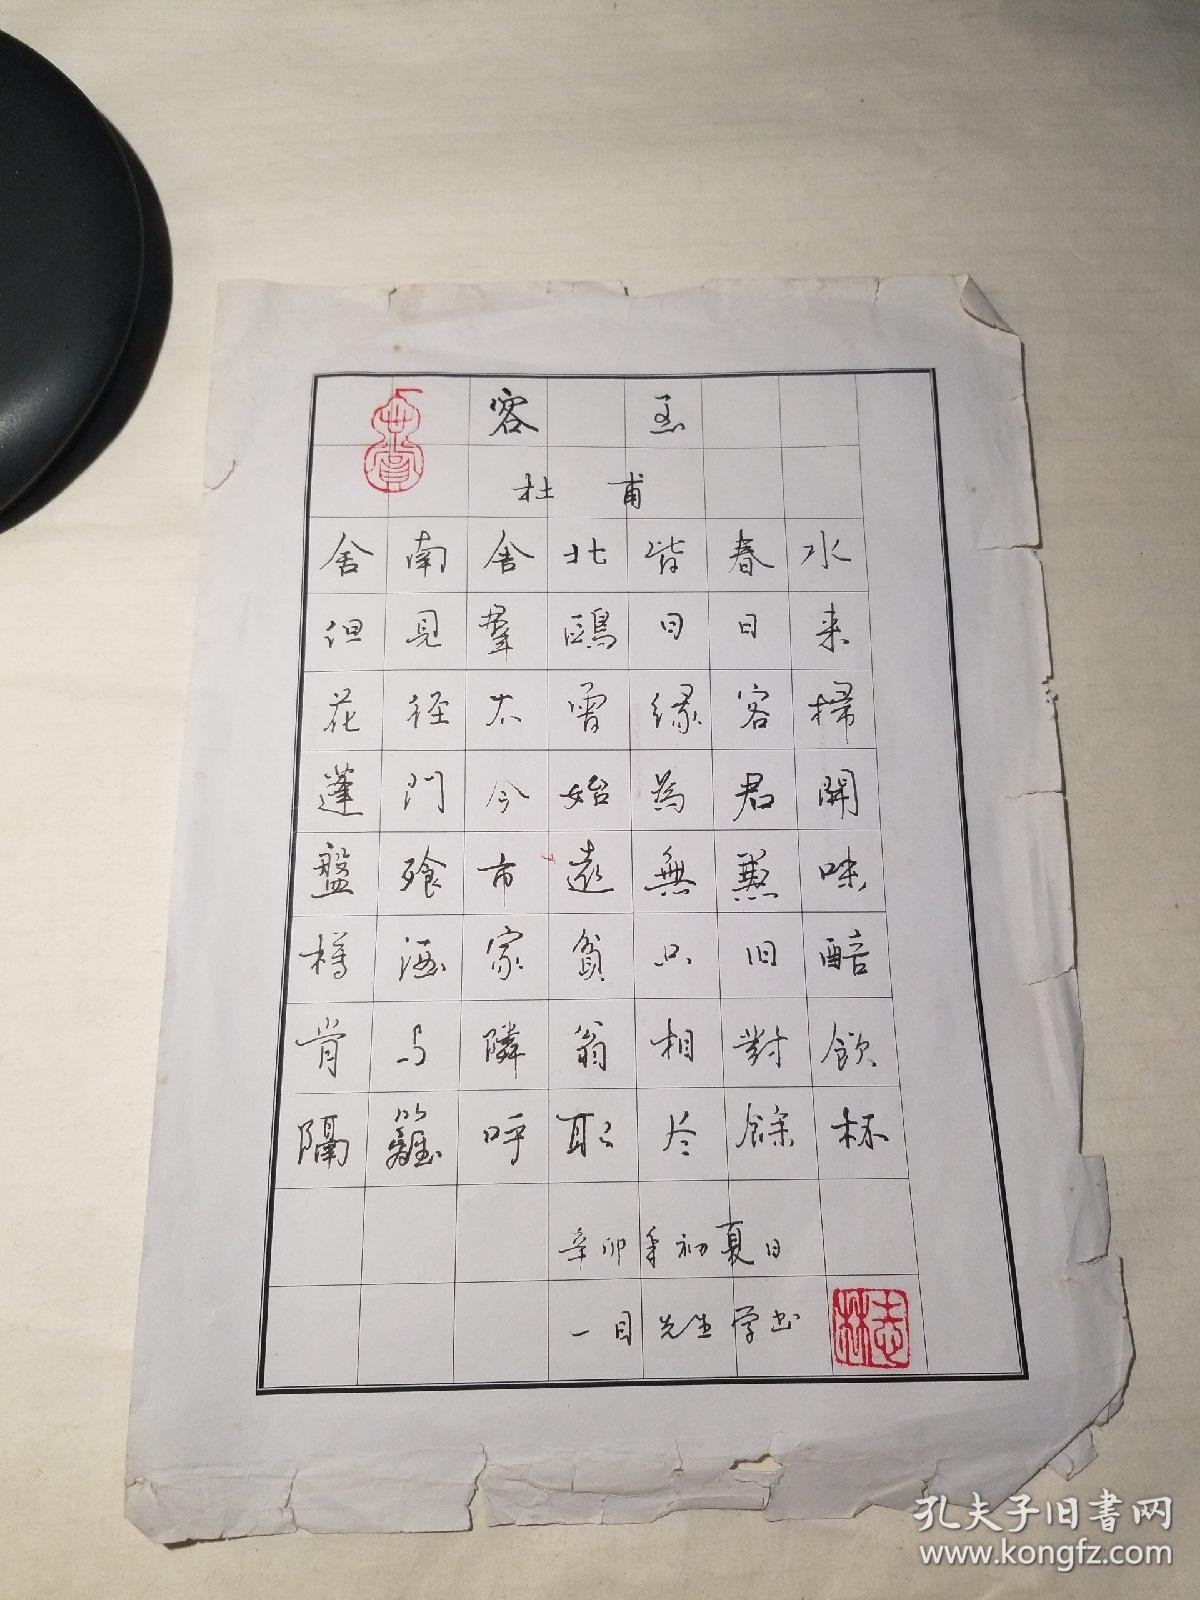 客至
杜甫
舍南舍北皆春水
但見羣鷗日日来
花径不曾缘客掃
蓬門今始為君開
盤飱市遠無兼味
樽酒家貧只旧醅
肯与隣翁相對飲
隔籬呼取尽餘杯
辛卯年初夏日
一目先生学书
志林
孔夫子旧书网
www.kongfz.com